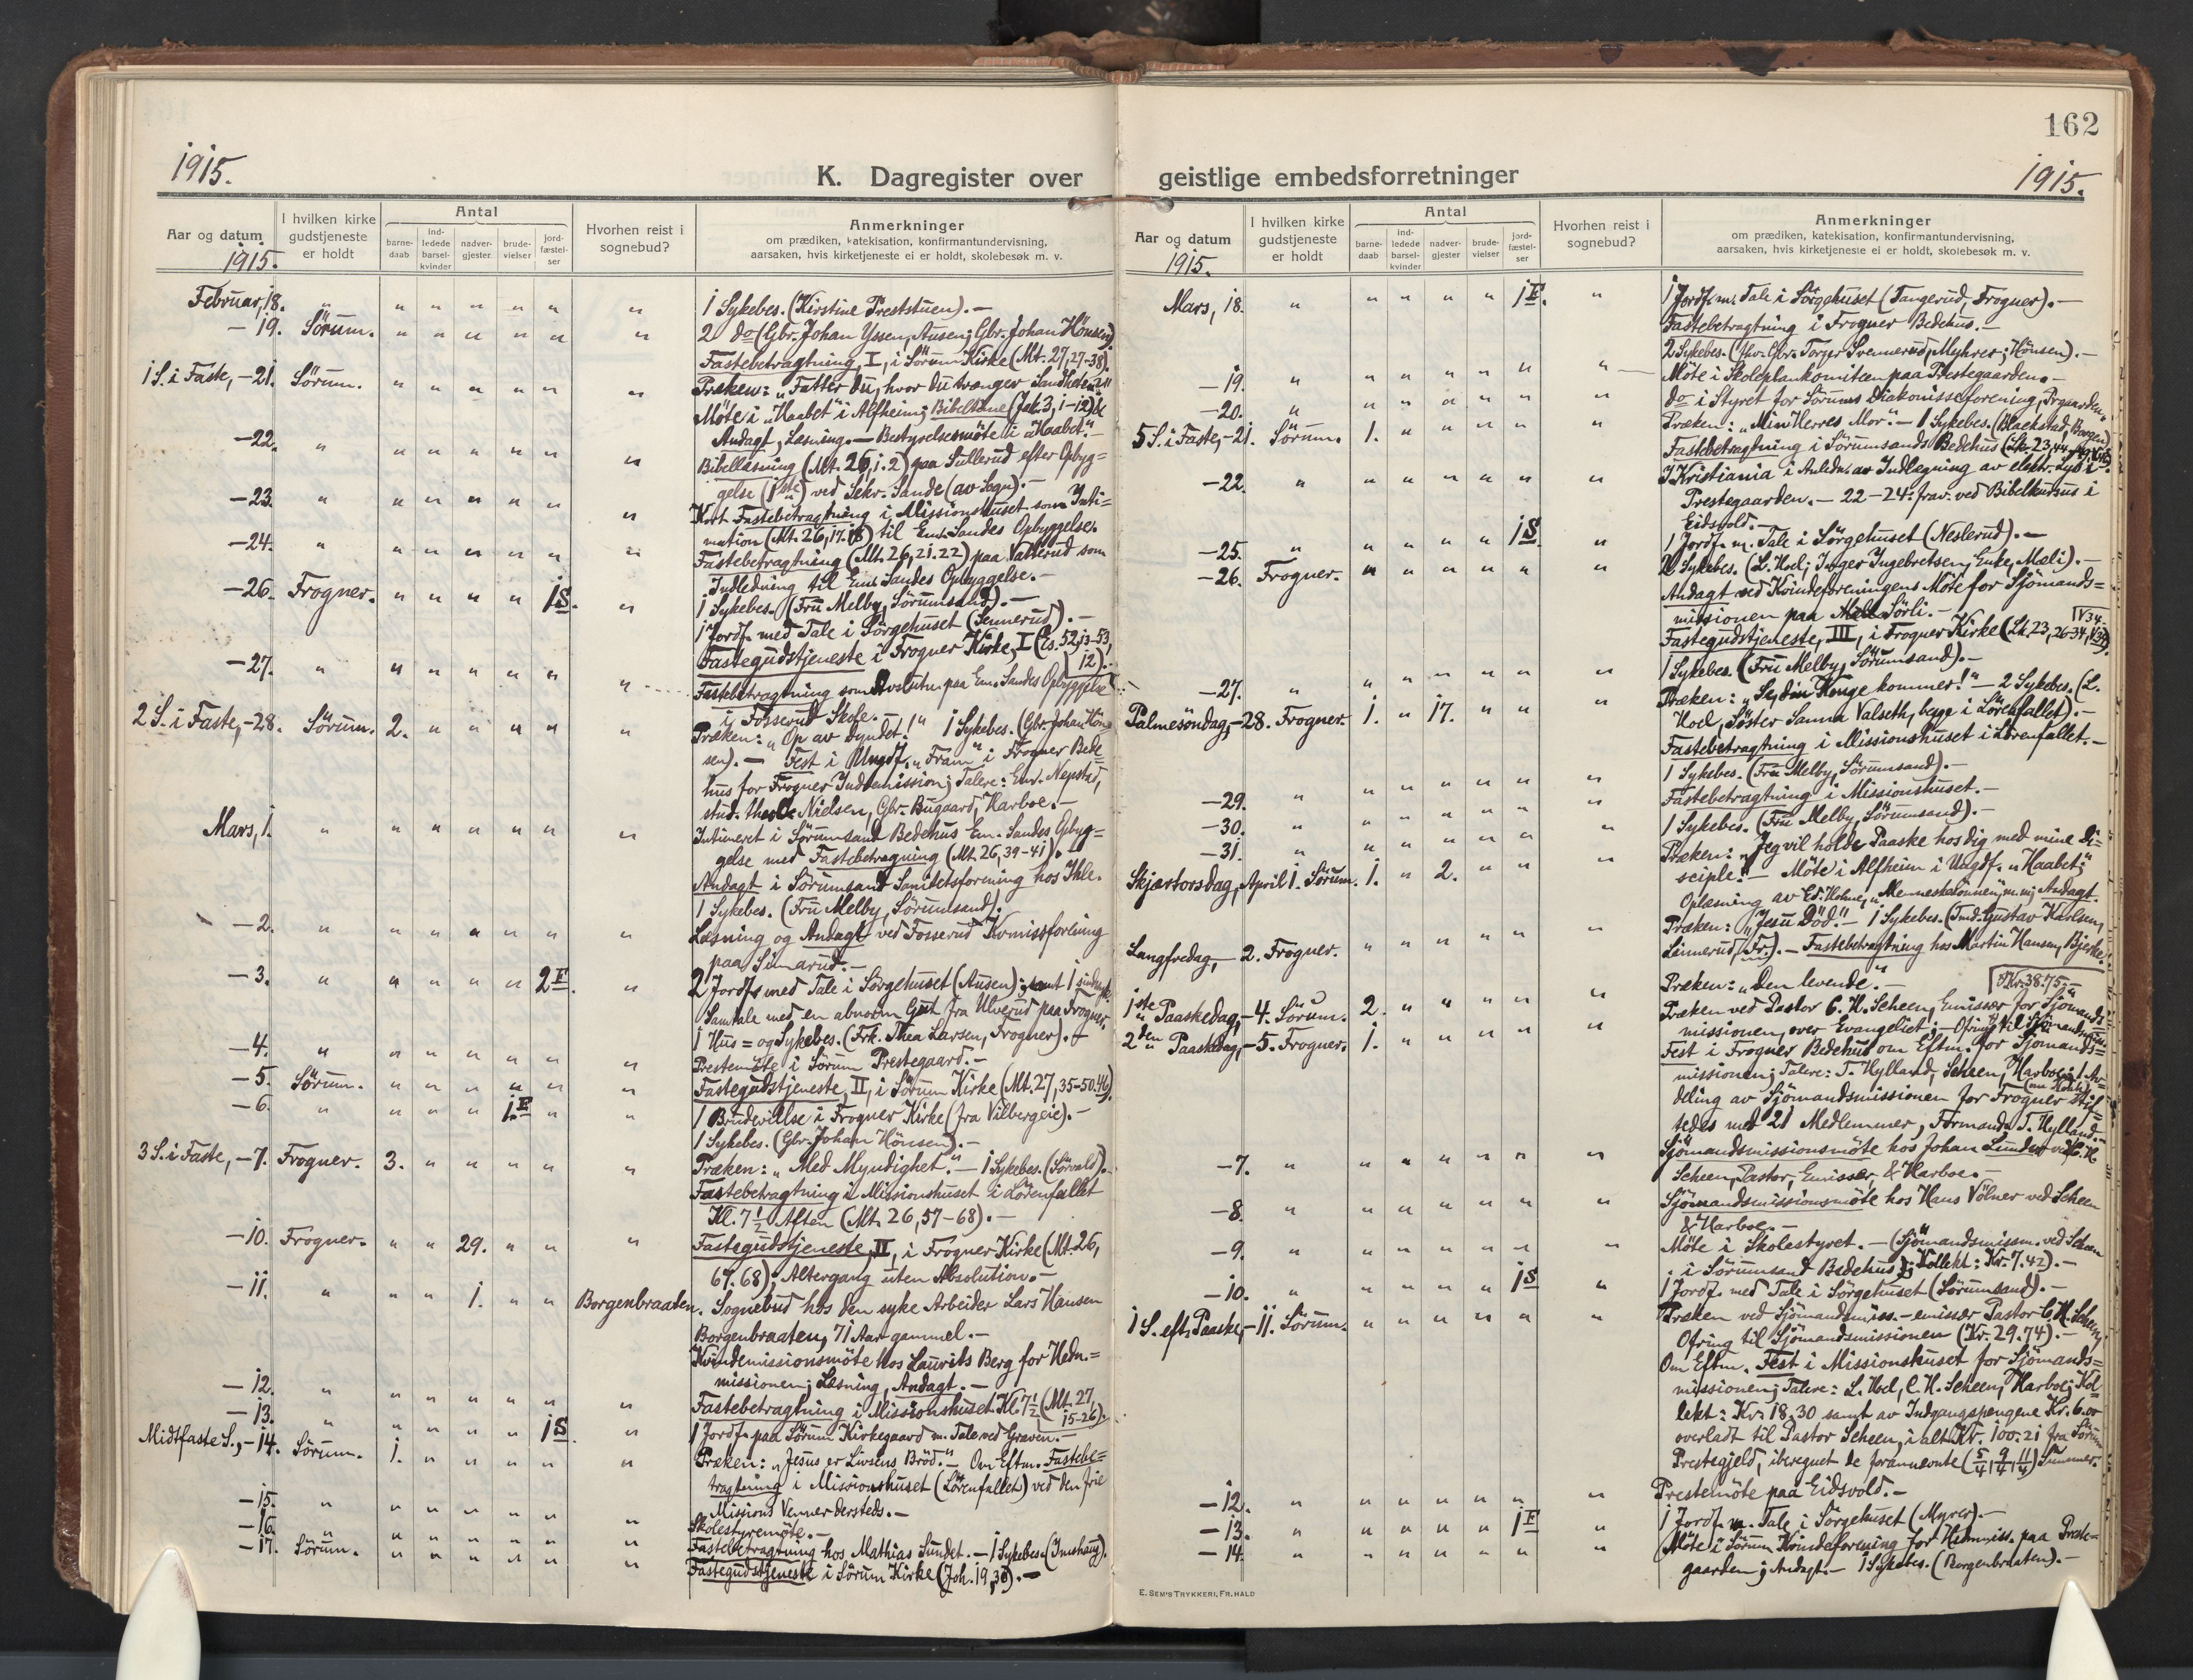 162
1915.
K. Dagregister over
Aar og datum
1915.
I hvilken kirke
gudstjeneste
er holdt
Antal
barne-
daab
ind-
ledede
barsel-
kvinder
nadver-
gjester
brude-
vielser
jord-
fæstel-
ser
Hvorhen reist i
sognebud?
Anmerkninger
om prædiken, katekisation, konfirmantundervisning,
aarsaken, hvis kirketjeneste ei er holdt, skolebesøk m. v.
Februar, 18. " " " " " " " 1 Sykebes. (Kirstine Preststuen). —
— 19. Sörum. " " " " " " 2 do (Gbr. Johan Yssen, Ausen; Gbr. Johan Hönsen)
Fastebetragtning, I, i Sörum Kirke (Mt. 27, 27-38).
1 S. i Faste, — 21. Sörum. " " " " " " Præken: "Fatter du, hvor du trænger Sandheten?"
Möte i "Haabet" i Alfheim; Bibeltime (Jak. 3, 1-12) &
Andagt, Læsning. — Bestyrelsesmöte i "Haabet". —
— 22. " " " " " " " Bibellæsning (Mt. 26, 1.2) paa Sullerud efter Opbyg=
gelse (1ste) ved Sekr. Sande (av Sogn). —
— 23. " " " " " " " Kort Fastebetragtning i Missionshuset som Inti=
mation (Mt. 26, 17.18) til Em. Sandes Opbyggelse.
— 24. " " " " " " " Fastebetragtning (Mt. 26, 21.22) paa Valterud som
Indledning til Em. Sandes Opbyggelse. —
— 26. Frogner. " " " " 1S. " 1 Sykebes. (Fru Melby, Sörumsand). —
1 Jordf. med Tale i Sörgehuset (Sennerud). —
Fastegudstjeneste i Frogner Kirke, I (Es. 52, 13-53,
12). —
— 27. " " " " " " " Fastebetragtning som Avslutn. paa Em. Sandes Opbyggelse
i Fosserud Skole. —
2 S. i Faste, — 28. Sörum. 2. " " " " " Præken: "Op av dyndet!" 1 Sykebes. (Gbr. Johan Hön=
sen). — Fest i Ungdf. "Fram" i Frogner Bede=
hus for Frogner Indremission; Talere: Em. Nepstad,
stud. theol. Nielsen, Gbr. Bugaard, Harboe. —
Mars, 1. " " " " " " " Intimeret i Sörumsand Bedehus Em. Sandes Opbyg=
gelse med Fastebetragning (Mt. 26, 39-41). —
Andagt i Sörumsand Sanitetsforening hos Ihle.
1 Sykebes. (Fru Melby, Sörumsand).
— 2. " " " " " " " Læsning og Andagt ved Fosserud Kvmissforening
paa Simarud. —
— 3. " " " " " 2F. " 2 Jordf. med Tale i Sörgehuset (Ausen); samt 1
Samtale med en abnorm Gut fra Ulverud paa Frogner.
1 Hus= og Sykebes. (Frk. Thea Larsen, Frogner). —
— 4. " " " " " " " Prestemöte i Sörum Prestegaard. —
— 5. Sörum. " " " " " " Fastegudstjeneste, II, i Sörum Kirke (Mt. 27, 35-50.46)
— 6. " " " " 1F " " 1 Brudevielse i Frogner Kirke (fra Vilbergeie). —
1 Sykebes. (Gbr. Johan Hönsen). —
3 S. i Faste, — 7. Frogner. 3. " " " " " Præken: "Med Myndighet". — 1 Sykebes. (Sörvald). —
Fastebetragtning i Missionshuset i Lörenfallet
Kl. 7½ Aften (Mt. 26, 57-68). —
— 10. Frogner. " " 29. " " " Fastegudstjeneste, II, i Frogner Kirke (Mt. 26,
67.68); Altergang uten Absolution. —
— 11. " " " 1. " " Borgenbraaten. Sognebud hos den syke Arbeider Lars Hansen
Borgenbraaten, 71 Aar gammel. —
Kvindemissionsmöte hos Laurits Berg for Hedn.=
missionen; Læsning, Andagt. —
— 12. " " " " " " " Fastebetragtning i Missionshuset Kl. 7½ (Mt. 27,
15-26).
— 13. " " " " " 1S " 1 Jordf. paa Sörum Kirkegaard m. Tale ved Graven. —
Midtfaste S., — 14. Sörum. 1. " " " " " Præken: "Jesus er Livsens Bröd." — Om Eftm. Fastebe=
tragtning i Missionshuset (Lörenfallet) ved den frie
Missions Venner dersteds. —
— 15. " " " " " " " Skolestyremöte. —
— 16. " " " " " " " Fastebetragtning hos Mathias Sundet. — 1 Sykebes. (Imshaug).
— 17. Sörum. " " " " " " Fastegudstjeneste i Sörum Kirke (Joh. 19, 30). —
1915.
geistlige embedsforretninger
Aar og datum
1915.
I hvilken kirke
gudstjeneste
er holdt
Antal
barne-
daab
ind-
ledede
barsel-
kvinder
nadver-
gjester
brude-
vielser
jord-
fæstel-
ser
Hvorhen reist i
sognebud?
Anmerkninger
om prædiken, katekisation, konfirmantundervisning,
aarsaken, hvis kirketjeneste ei er holdt, skolebesøk m. v.
Mars, 18. " " " " " 1F. " 1 Jordf. m. Tale i Sörgehuset (Tangerud, Frogner). —
Fastebetragtning i Frogner Bedehus. —
2 Sykebes. (fhv. Gbr. Torger Svennerud, Myhrer; Hönsen). —
— 19. " " " " " " " Möte i Skoleplankomiteen paa Prestegaarden. —
— 20. " " " " " " " do i Styret for Sörums Diakonisseforening, Prgaarden.
5 S. i Faste, — 21. Sörum. 1. " " " " " Præken: "Min Herres Mor". — 1 Sykebes. (Blackstad, Borgen)
Fastebetragtning i Sörumsands Bedehus (Lk. 23, 44-49).
— 22. " " " " " " " I Kristiania i Anledn. av Indlegning av elektr. Lys i
Prestegaarden. — 22-24: frav. ved Bibelkursus i
Eidsvold. —
— 25. " " " " " 1S. " 1 Jordf. m. Tale i Sörgehuset (Neslerud). —
— 26. Frogner. " " " " " " 2 Sykebes. (L. Hoel; Inger Ingebretsen, Enke, Mæli). —
Andagt ved Kvindeforeningens Möte for Sjömands=
missionen paa Sörli. —
Fastegudstjeneste, III, i Frogner Kirke (Lk. 23, 26-34, V 34).
— 27. " " " " " " " 1 Sykebes. (Fru Melby, Sörumsand). —
Palmesöndag, — 28. Frogner. 1. " 17. " " " Præken: "Se, din Konge kommer!" — 2 Sykebes. (L.
Hoel, Söster Sanna Valseth, begge i Lörenfallet). —
Fastebetragtning i Missionshuset i Lörenfallet. —
— 29. " " " " " " " 1 Sykebes. (Fru Melby, Sörumsand). —
Fastebetragtning i Missionshuset. —
— 30. " " " " " " " 1 Sykebes. (Fru Melby, Sörumsand). —
— 31. " " " " " " "
Skjærtorsdag, April 1. Sörum. 1. " 2. " " " Præken: "Jeg vil holde Paaske hos dig med mine di=
sciple". — Möte i Alfheim i Ungdf. "Haabet;"
Oplæsning av Ed. Hohne, "Mennesksönnen" m. m; Andagt.
Langfredag, — 2. Frogner. " " " " " " Præken: "Jesu Död". — 1 Sykebes. (Gustav Karlsen,
Linnerud, Fr.). — Fastebetragtning hos Martin Hansen, Bjerke.
1ste Paaskedag, — 4. Sörum. 2. " " " " " Præken: "Den levende". —
Kr. 38.75. —
2den Paaskedag, — 5. Frogner. 1. " " " " " Præken ved Pastor C. H. Scheen, Emissær for Sjömands=
missionen, over Evangeliet; — Ofring til Sjömandsm.
Fest i Frogner Bedehus om Eftm. for Sjömands=
missionen; Talere: T. Hylland, Scheen, Harboe; 1 Av=
deling av Sjömandsmissionen for Frogner stif=
tedes med 21 Medlemmer, Formand T. Hylland. —
— 7. " " " " " " " Sjömandsmissionsmöte hos Johan Lunder ved C. H.
Scheen, Pastor, Emissær, & Harboe. —
— 8. " " " " " " " Sjömandsmissionsmöte hos Hans Völner ved Scheen
& Harboe. —
— 9. " " " " " " " Möte i Skolestyret. — (Sjömandsmissm. ved Scheen
i Sörumsand Bedehus; Kollekt: Kr. 7.42). —
— 10. " " " " " 1S " 1 Jordf. med Tale i Sörgehuset (Sörumsand). —
1 S. eft. Paaske, — 11. Sörum. " " " " " " Præken ved Sjömandsmiss.-emissær Pastor C. H. Scheen;
Ofring til Sjömandsmissionen (Kr. 29.74). —
Om Eftm. Fest i Missionshuset for Sjömands=
missionen; Talere: L. Hoel, C. H. Scheen, Harboe; Kol=
lekt: Kr. 18.30 samt av Indgangspengene Kr. 6.00
overladt til Pastor Scheen, i alt Kr. 100.21 fra Sörum
Prestegjeld, iberegnet de forannevnte (5/4, 9/4, 11/4) Summer.
— 12. " " " " " " " Prestemöte paa Eidsvold. —
— 13. " " " " " 1F " 1 Jordf. m. Tale i Sörgehuset (Myrer). —
— 14. " " " " " " " Möte i Sörum Kvindeforening for Hedmiss. paa Preste=
gaarden; Andagt. — 1 Sykebes. (Borgenbraaten). —
E. SEM'S TRYKKERI, FR. HALD